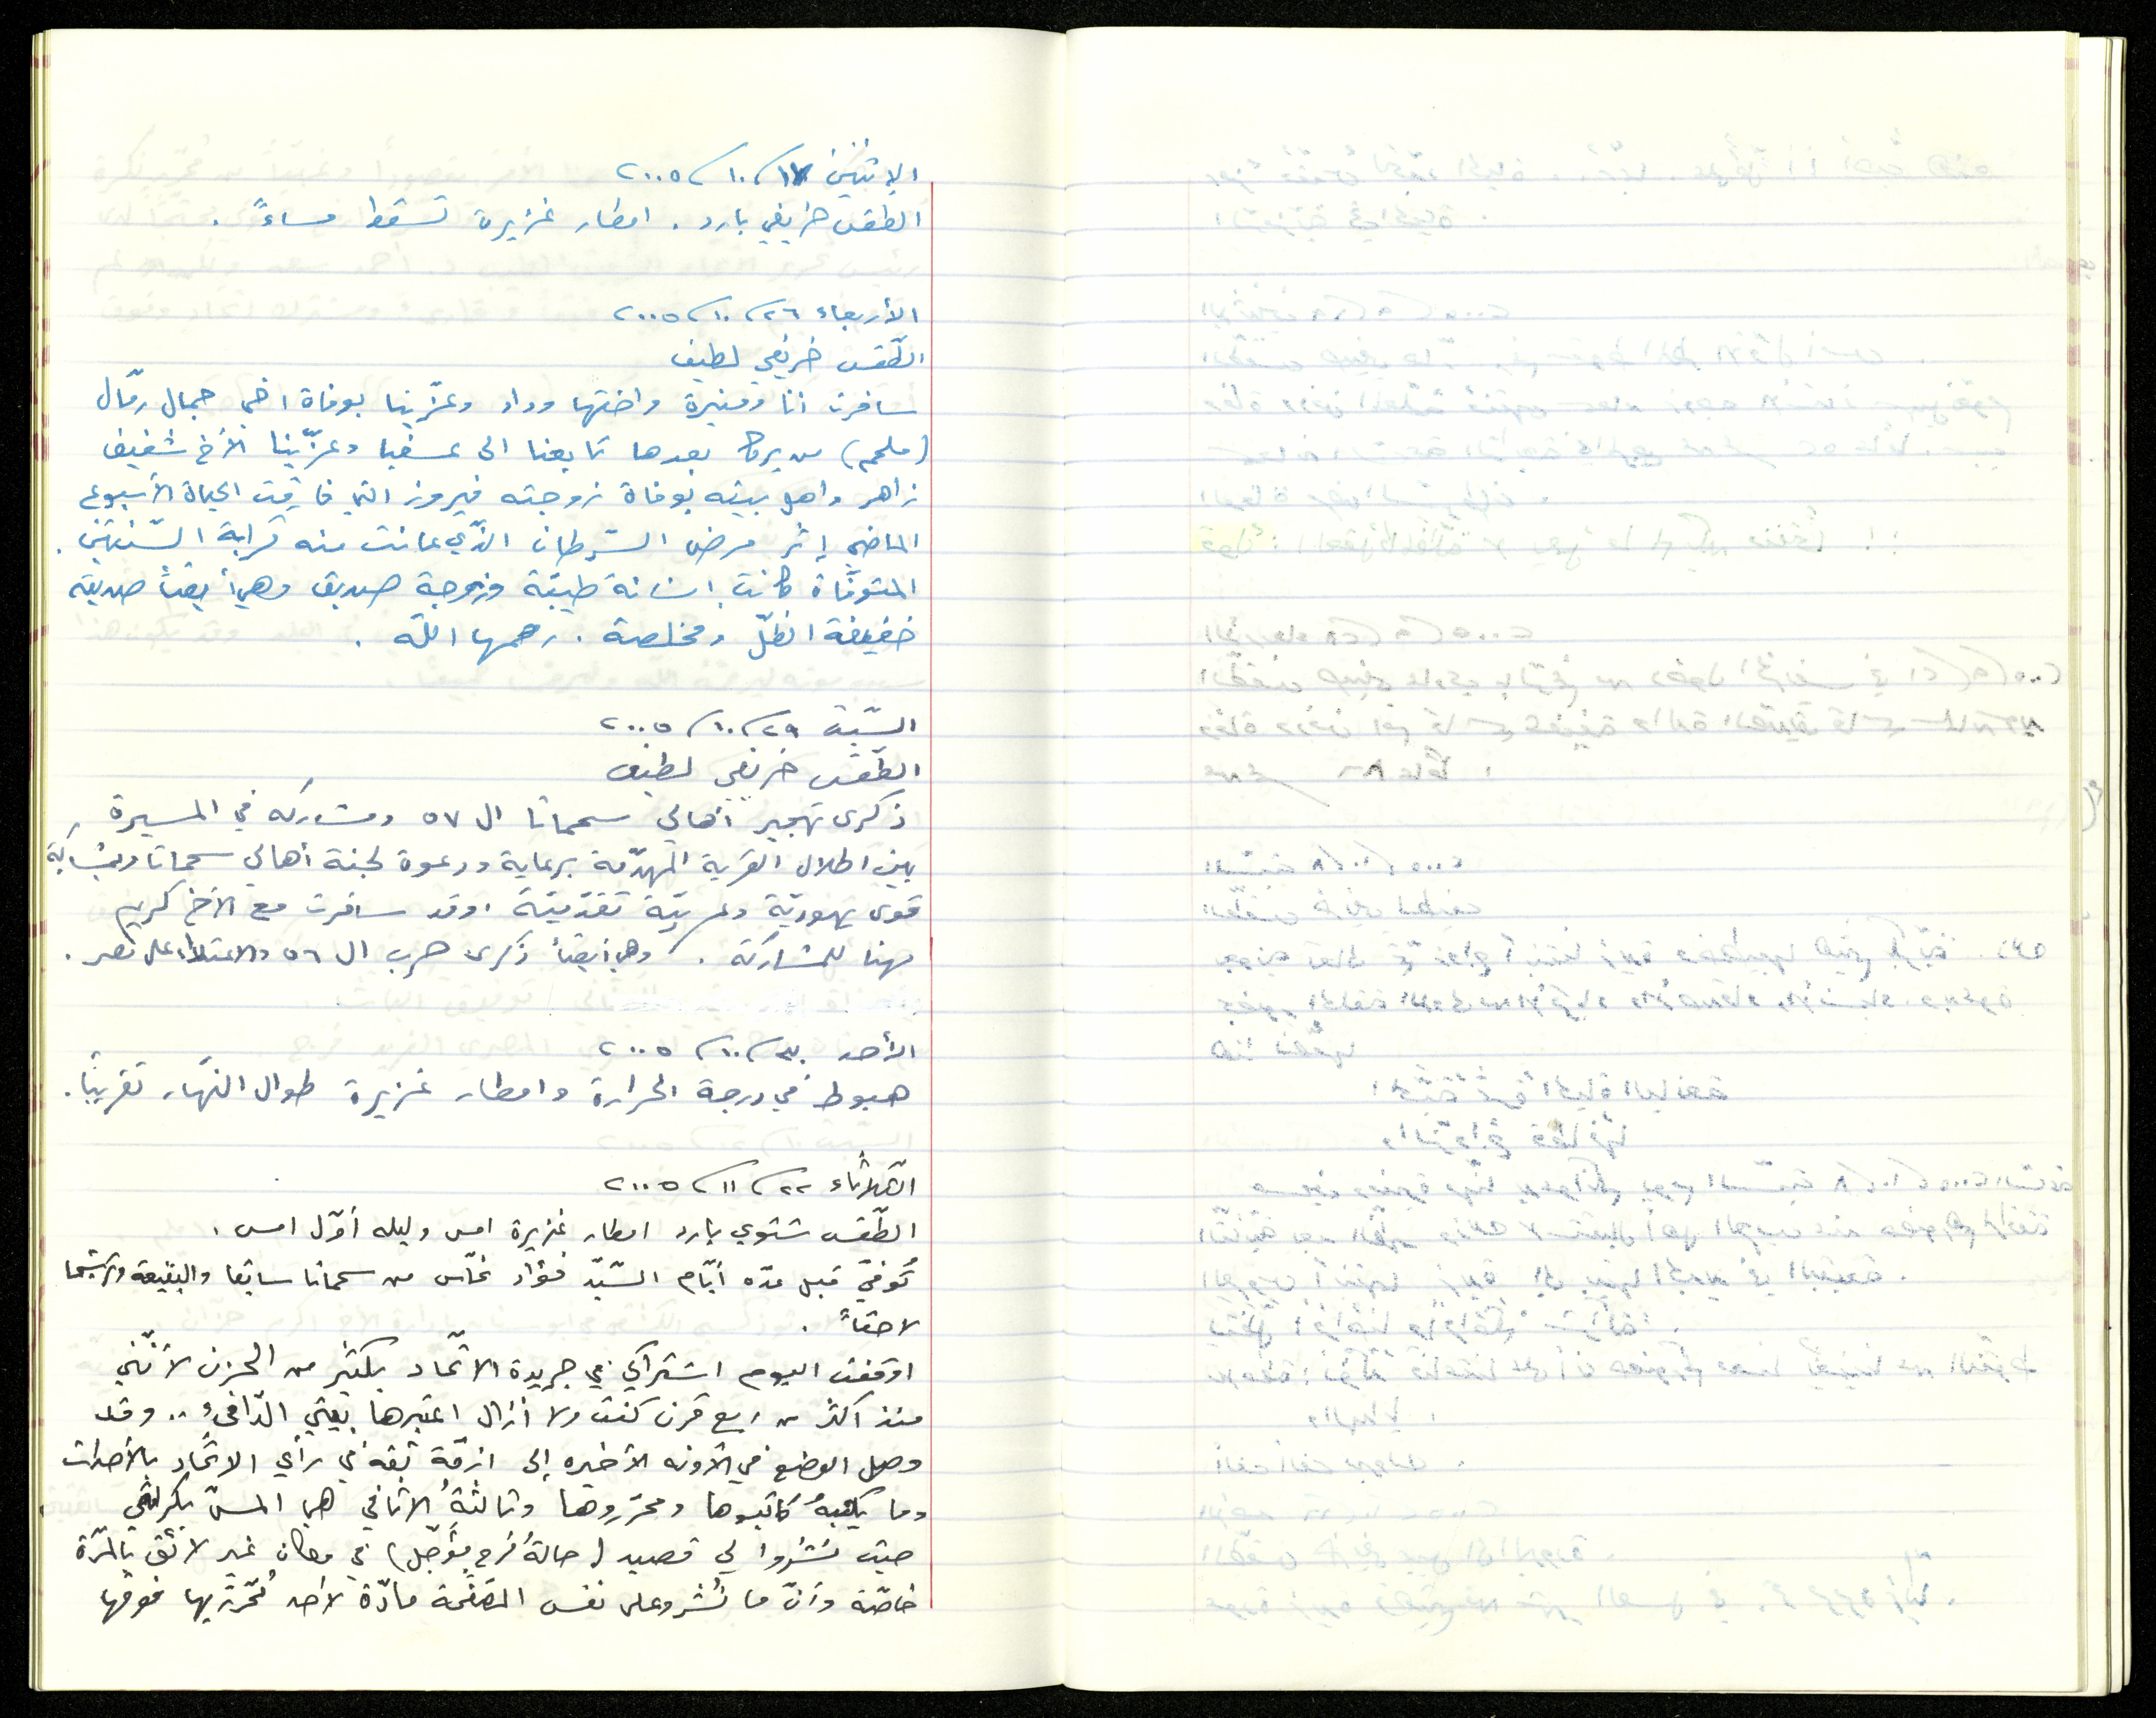 الإثنين ١٧/ ١٠/ ٢٠٠٥
الطقس خريفي بارد. امطار غزيرة تسقط مساءً.
الأربعاء ٢٦/ ١٠/ ٢٠٠٥
الطّقس خريفي لطيف
سافرت انا ومنيرة واختها وداد وعزّينا بوفاة اخي جمال رمّال
(ملحم) من يركا بعدها تابعنا الى عسفيا وعزّينا الأخ شفيف
زاهر واهل بيته بوفاة زوجته فيروز التي فارقت الحياة الأسبوع
الماضي إثر مرض السّرطان الذّي عانت منه قرابة السّنتين.
المتوفّاة كانت انسانة طيبّة وزوجة صديق وهي أيضاً صديقه
خفيفة الظلّ ومخلصة. رحمها اللّه.
السّبت ٢٩/ ١٠/ ٢٠٠٥
الطّقس خريفي لطيف
ذكرى تهجير أهالي سحماتا ال ٥٧ ومشاركه في المسيرة
بين اطلال القرية المهدّمة برعاية ودعوة لجنة أهالي سحماتا وبمشاركة
قوى يهوديّة وعربيّة تقدّميّة. وقد سافرت مع الأخ كريم
مهنا للمشاركة. وهي أيضاً ذكرى حرب ال ٥٦ والاعتداء على مصر.
الأحد ٣٠/ ١٠/ ٢٠٠٥
هبوط في درجة الحرارة وامطار غزيرة طوال النهّار تقريبًا.
الثّلاثاء ٢٢/ ١١/ ٢٠٠٥
الطّقس شتوي بارد امطار غزيرة امس وليله أوّل امس.
تُوفيّ قبل عدّه أيّام السّيّد فؤاد نحّاس من سحماتا سابقا والبقيعة وترشيحا
لاحقاً.
اوقفت اليوم اشتراكي في جريدة الاتّحاد بكثير من الحزن لأنّني
منذ اكثر من ربع قرن كنت ولا أزال اعتبرها بيتي الدّافىء.. وقد
وصل الوضع في الآونه الأخيره إلى ازمّة ثقه في رأي الاتّحاد بالأحداث
وما يكتبهُ كاتبوها ومحرّروها وثالثةُ الأثافي هي المسّ بكرامتي
حيث نشروا لي قصيد (حالةُ فرحٍ مؤجّل) في مكان غير لائق بالمرّة
خاصّة وأنّ ما نُشر وعلى نفس الصّفحة مادّة لأحد مُحرّريها فوقها